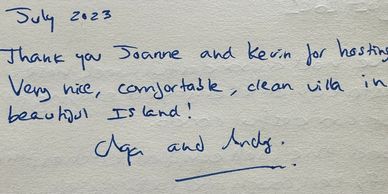 July 2023
Thank you Joanne and Kevin for hosting
Very nice, comfortable, clean villa in
beautiful Island!
Aga and Andy.